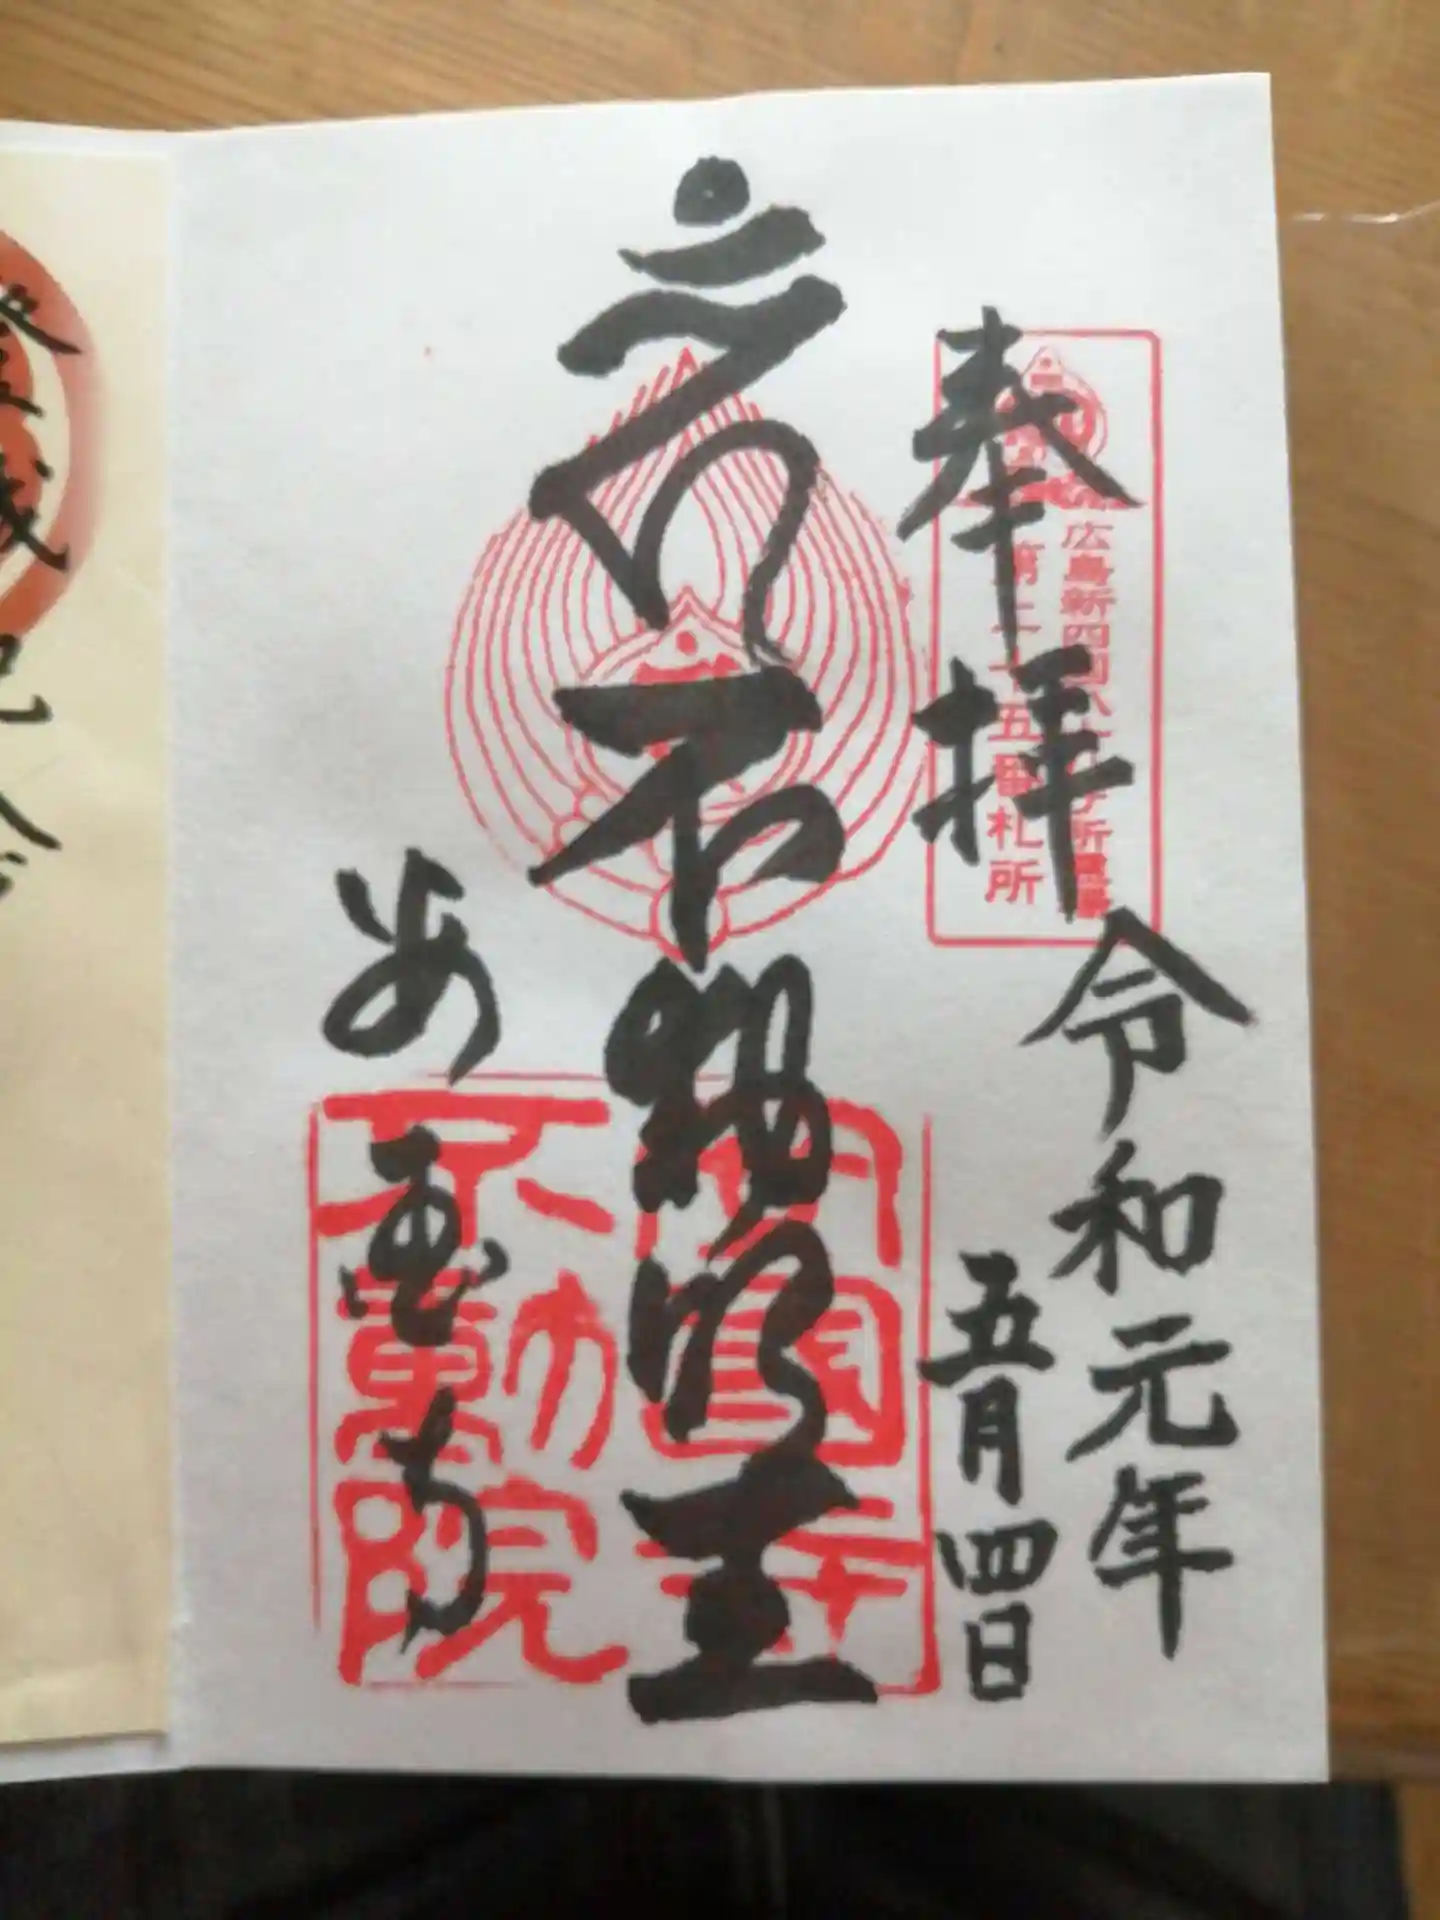 奉拝
広島新四国八十八ヶ所霊場
第二十五番札所
令和元年
五月四日
不動明王
国寺
不動院